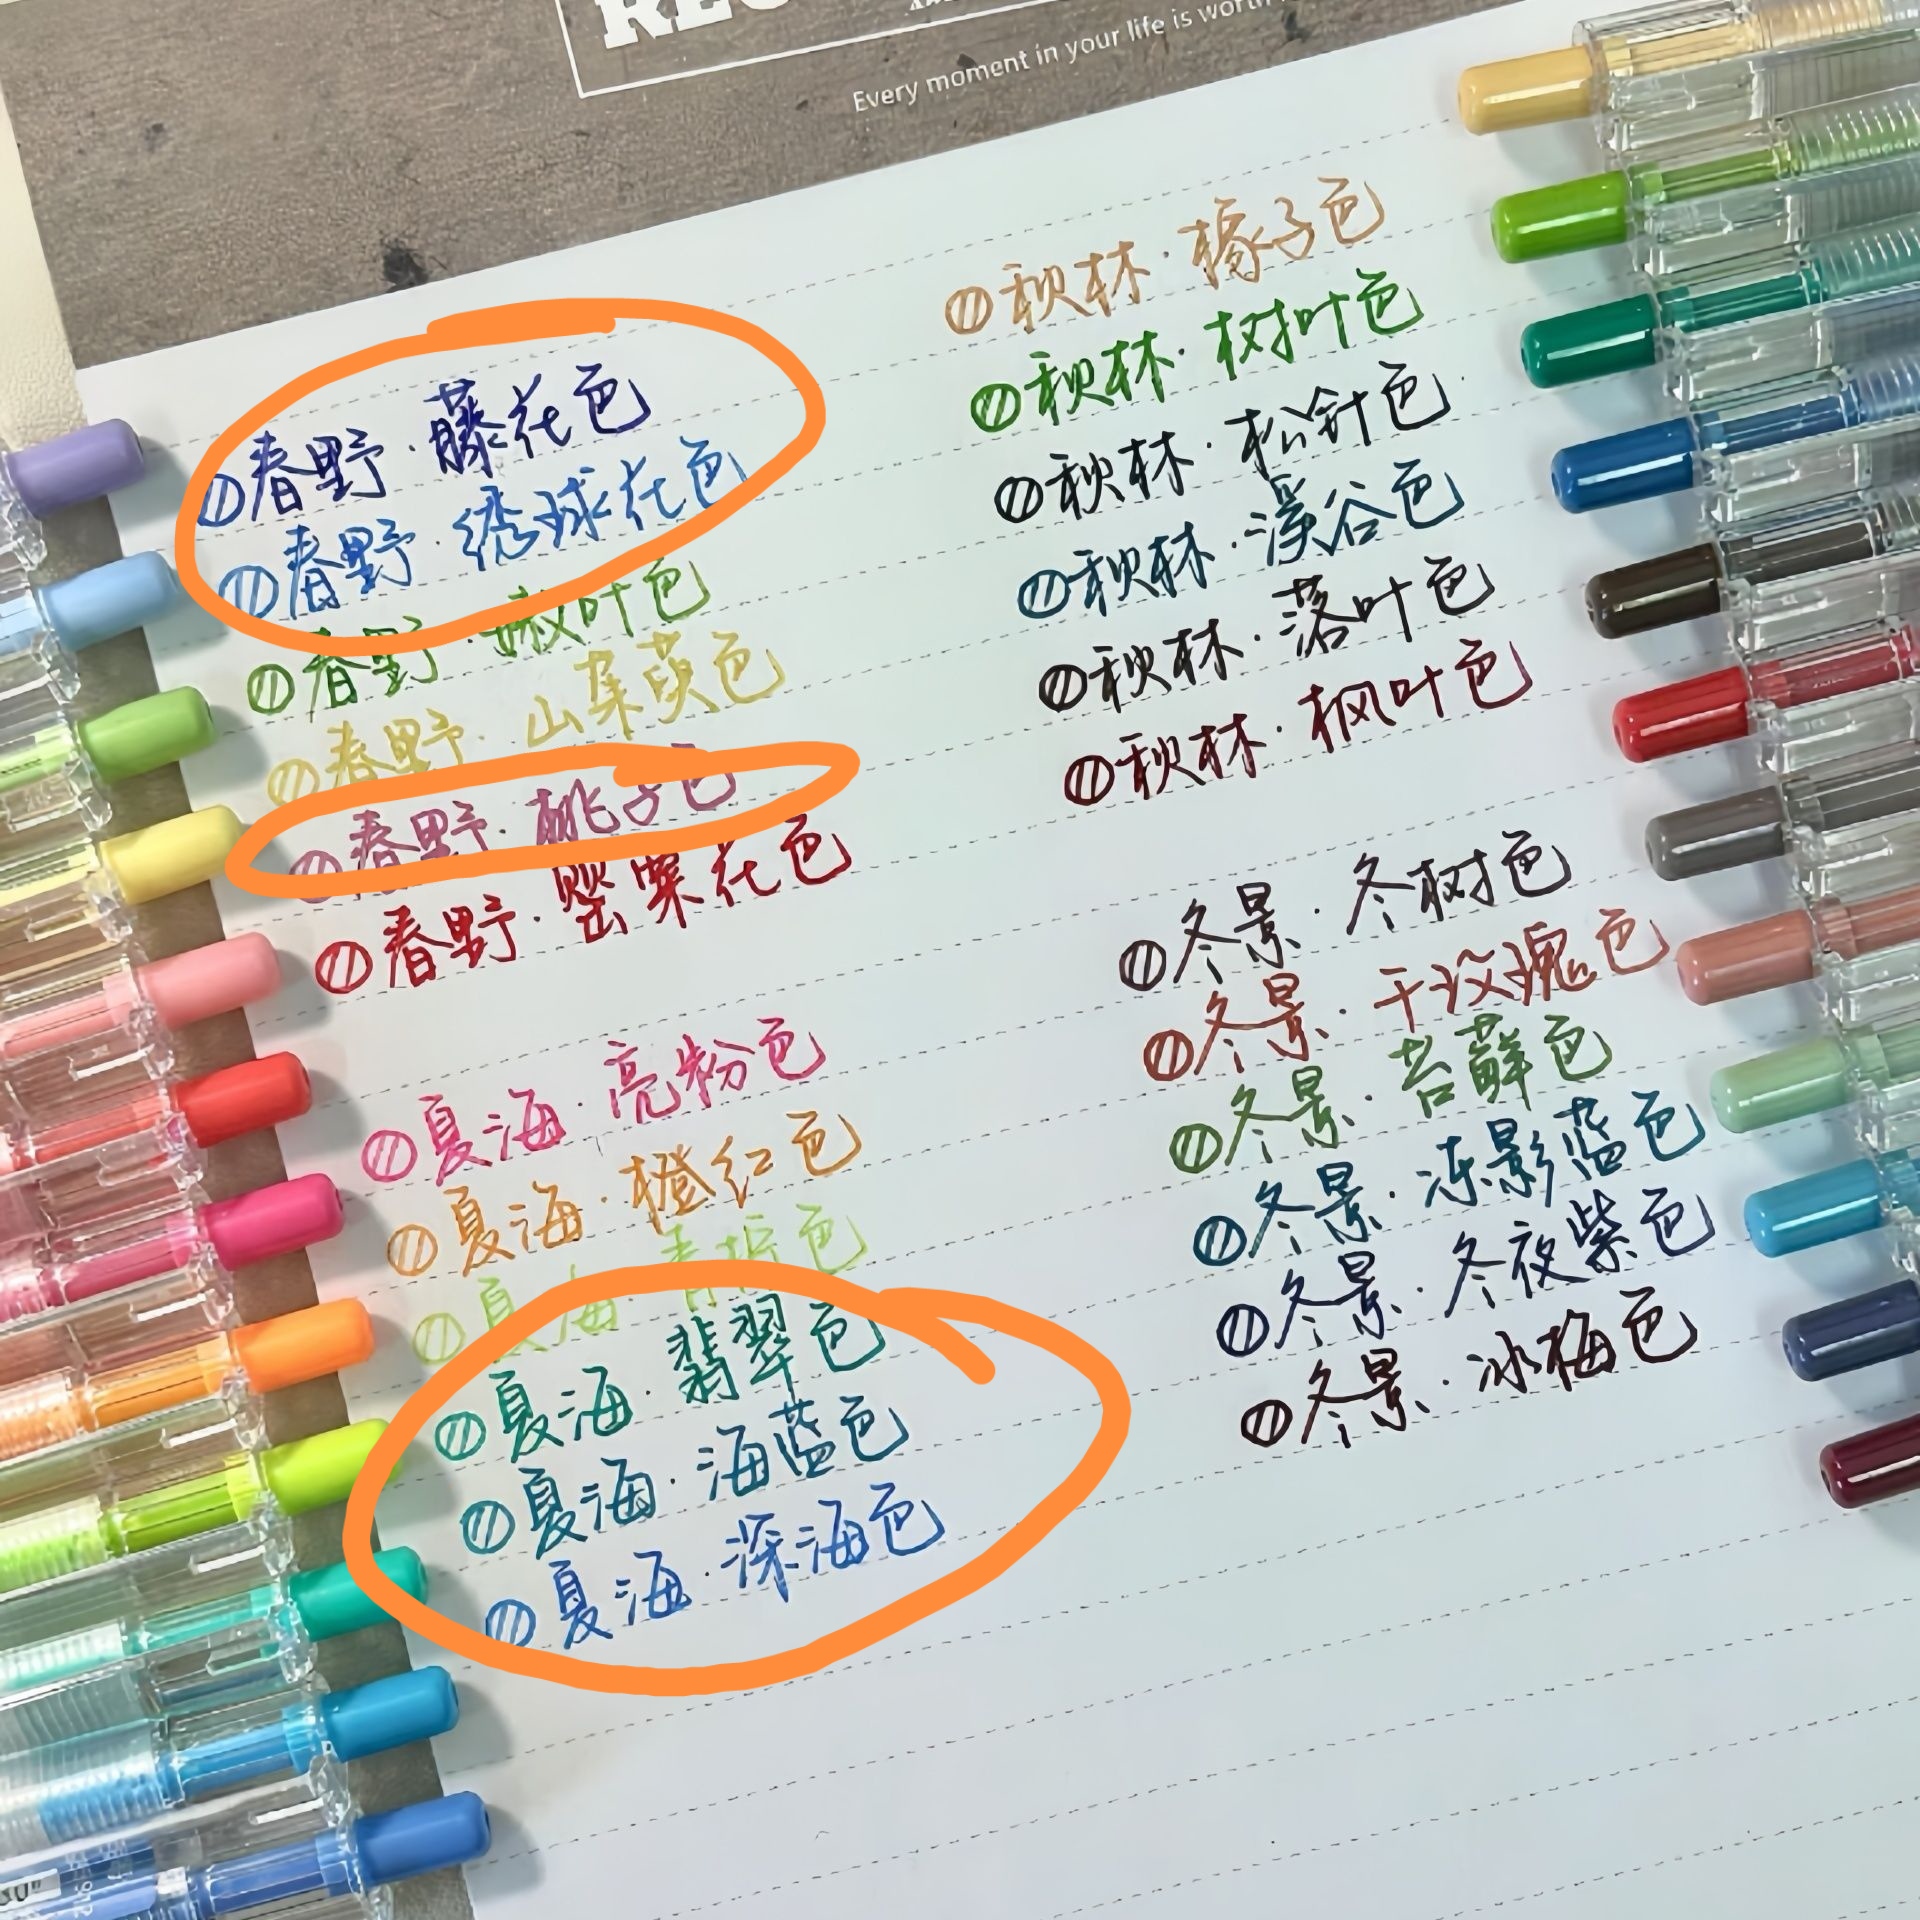 Every moment in your life is worth
春野·藤花色
春野·绣球花色
春野·嫩叶色
春野·山茱萸色
春野·桃子色
春野·罂粟花色
夏海·亮粉色
夏海·橙红色
夏海·青柠色
夏海·翡翠色
夏海·海蓝色
夏海·深海色
秋林·橡子色
秋林·树叶色
秋林·松针色
秋林·溪谷色
秋林·落叶色
秋林·枫叶色
冬景·冬树色
冬景·干玫瑰色
冬景·苔藓色
冬景·冻影蓝色
冬景·冬夜紫色
冬景·冰梅色